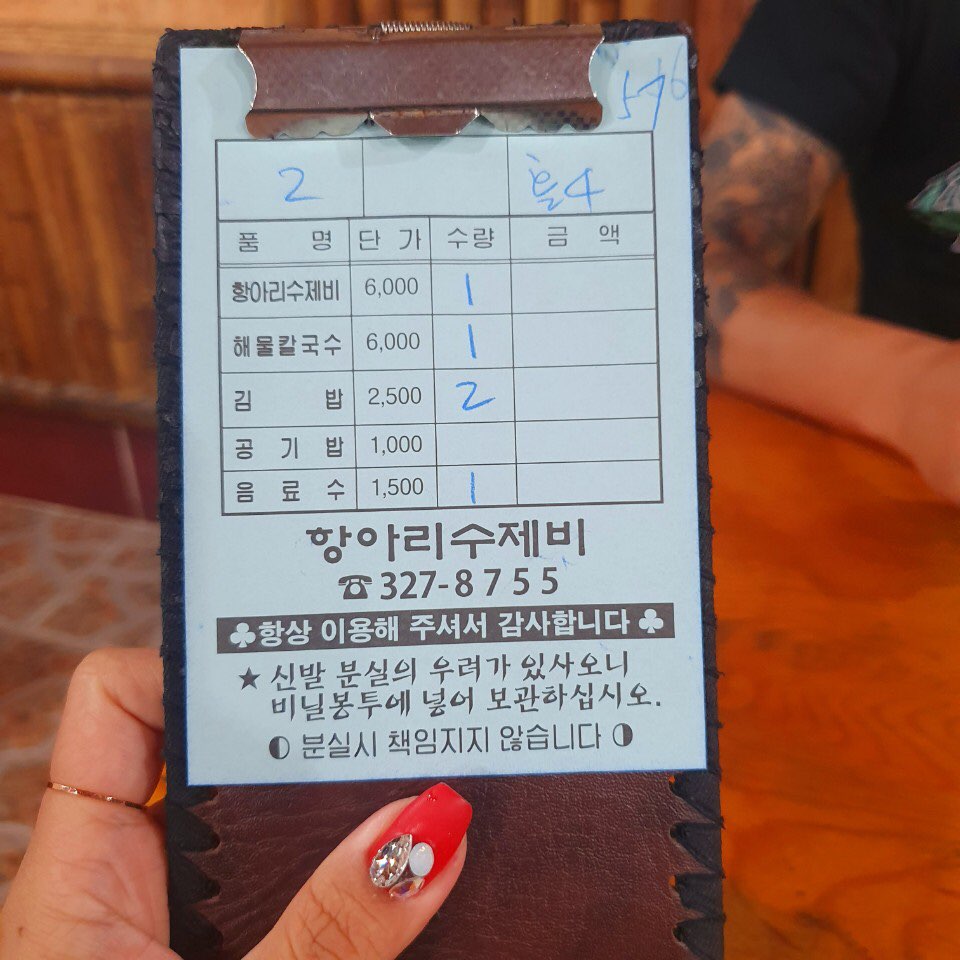 576
2 홀4
품 명 단 가 수량 금 액
항아리수제비 6,000 1
해물칼국수 6,000 1
김 밥 2,500 2
공 기 밥 1,000
음 료 수 1,500 1
항아리수제비
☎327-8755
♣항상 이용해 주셔서 감사합니다♣
★ 신발 분실의 우려가 있사오니
비닐봉투에 넣어 보관하십시오.
◐ 분실시 책임지지 않습니다 ◑